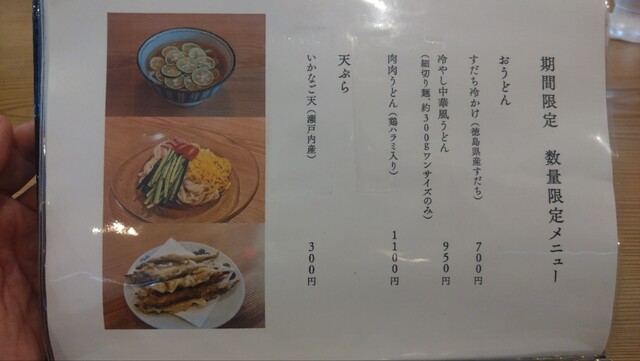 期間限定 数量限定メニュー
おうどん
すだち冷かけ(徳島県産すだち) 700円
冷やし中華風うどん 950円
(細切り麺、約300gワンサイズのみ)
肉肉うどん(鶏ハラミ入り) 1100円
天ぷら
いかなご天(瀬戸内産) 300円